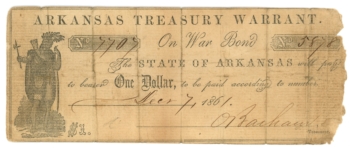 ARKANSAS TREASURY WARRANT.
No 7707 On War Bond No
The STATE OF ARKANSAS will pay
to bearer One Dollar, to be paid according to number.
7, 1861.
$1.